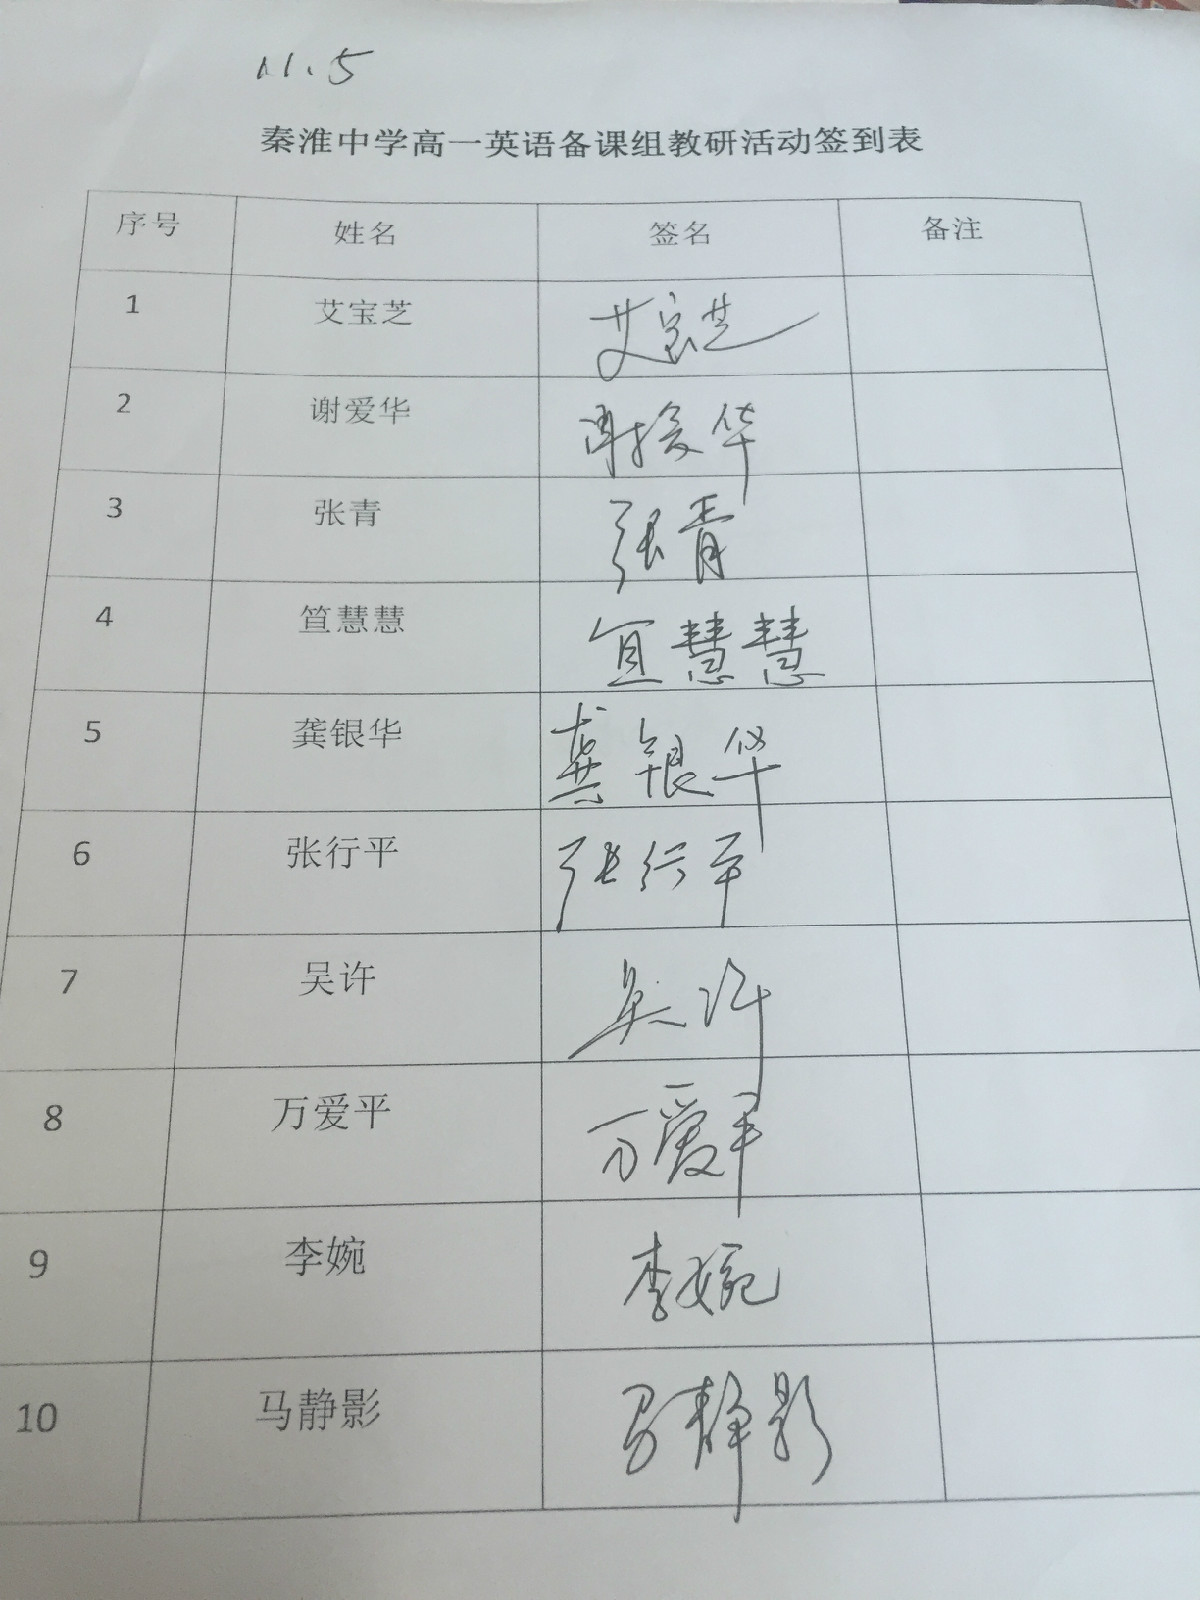 11.5
秦淮中学高一英语备课组教研活动签到表
序号 姓名 签名 备注
1 艾宝芝 艾宝芝
2 谢爱华 谢爱华
3 张青 张青
4 笪慧慧 笪慧慧
5 龚银华 龚银华
6 张行平 张行平
7 吴许 吴许
8 万爱平 万爱平
9 李婉 李婉
10 马静影 马静影